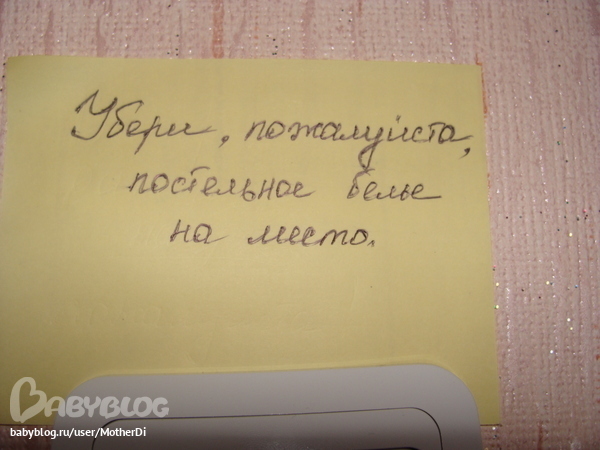 Убери, пожалуйста,
постельное белье
на место.
BABYBLOG
babyblog.ru/user/MotherDi